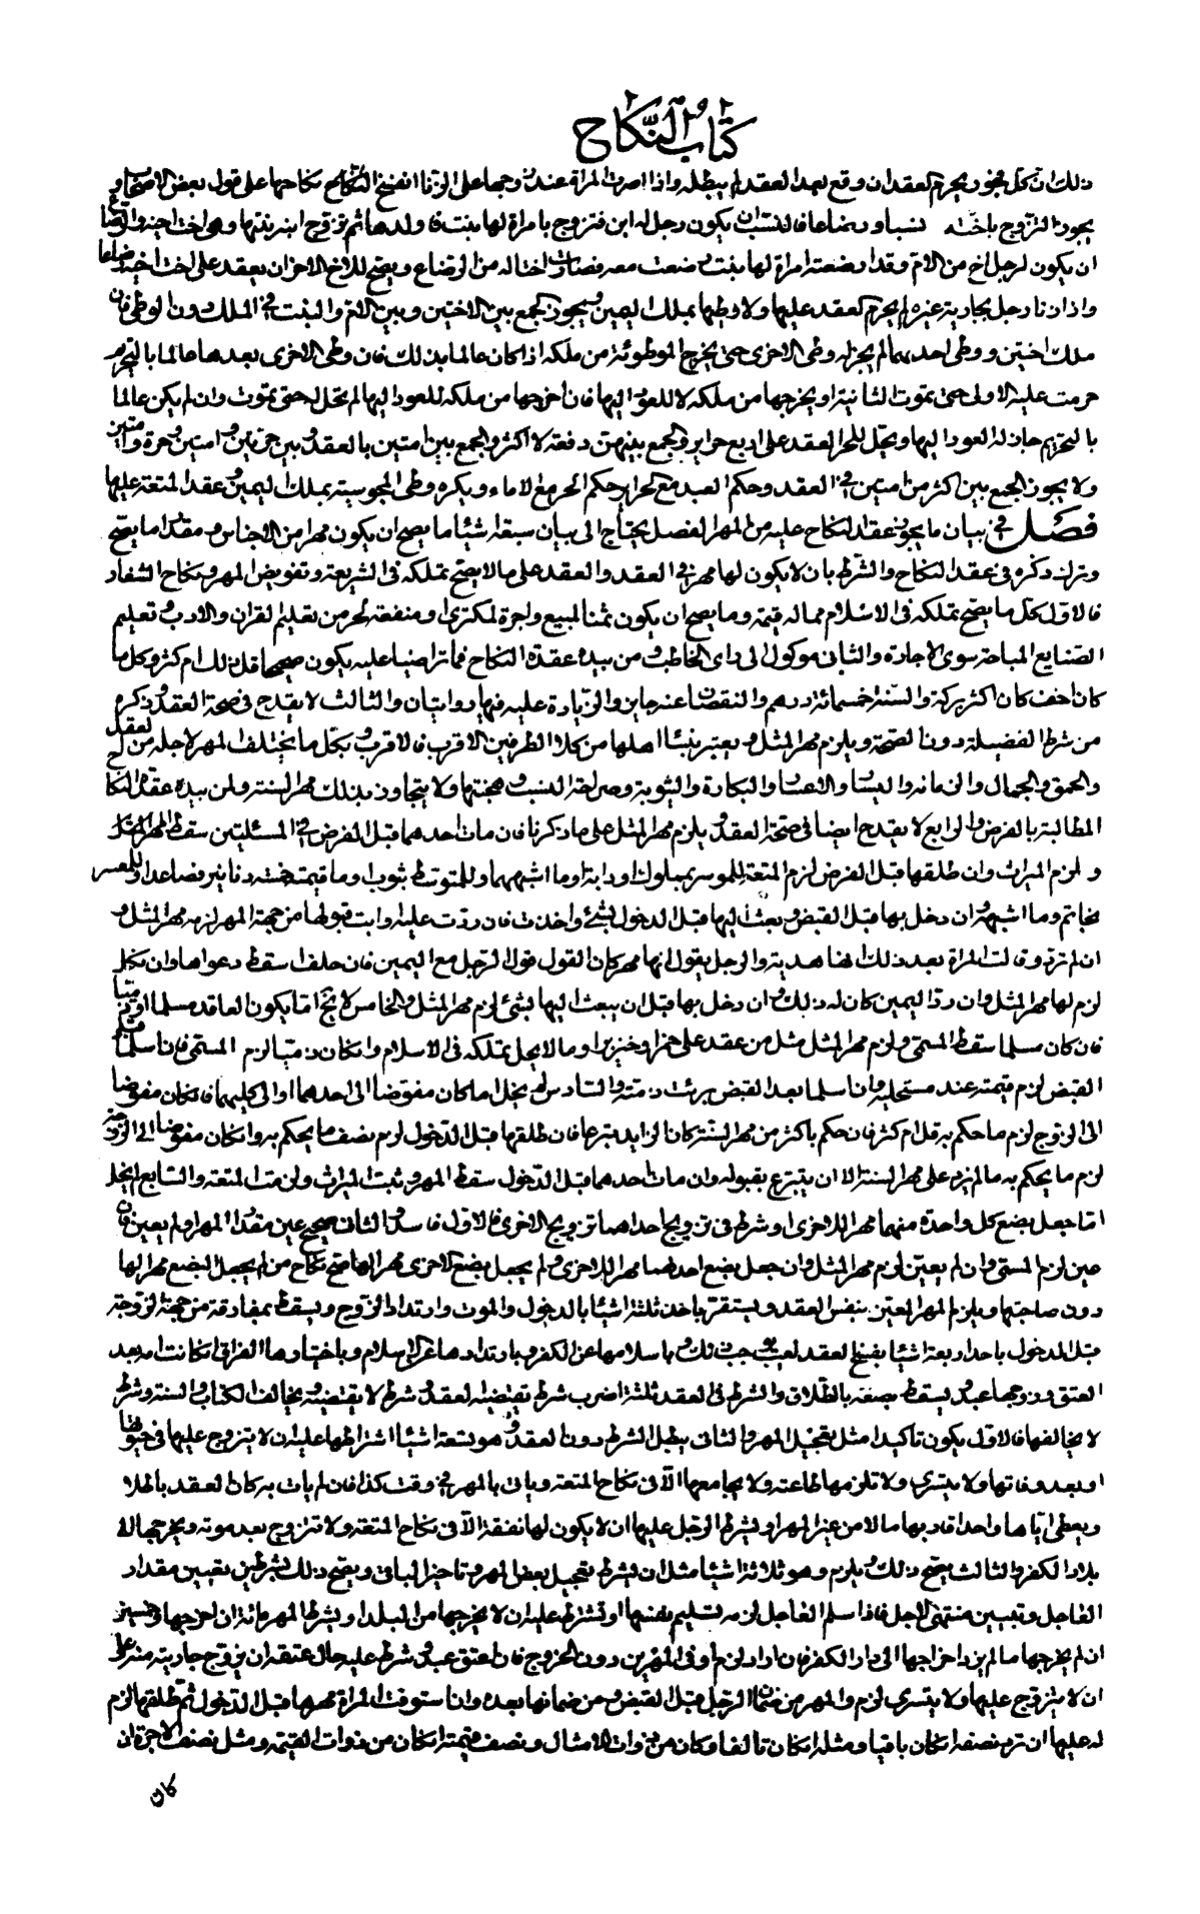 كتاب النكاح
ذلك ان كل فجور يحرم العقد ان وقع بعد العقد لم يبطله واذا اصرت المراة عند زوجها على الزنا انفسخ نكاحها على قول بعض الاصحاب و
يجوز التزوج باخت نسبا ورضاعا فالنسب ان يكون رجل له ابن فتزوج بامراة لها بنت فاولدها ثم تزوج ابنه بنتها وهى اخت اخيه والرضاع
ان يكون لرجل اخ من الام وقد ارضعته امراة لها بنت رضعت معه فصارت اختا له من الرضاع ويصح للاخ الاخر ان يعقد على اخت اخيه رضاعا
واذا زنا رجل بجارية غيره لم يحرم العقد عليها ولا وطيها بملك اليمين ويجوز الجمع بين الاختين وبين الام والبنت فى الملك دون الوطى فان
ملك اختين ووطى احديهما لم يجز له وطى الاخرى حتى يخرج الموطوئة من ملكه اذا كان عالما بذلك فان وطى الاخرى بعدها عالما بالتحريم
حرمت عليه الاولى حتى تموت الثانية او يخرجها من ملكه لا للعود اليها فان اخرجها من ملكه للعود اليها لم تحل له حتى تموت وان لم يكن عالما
بالتحريم جاز له العود اليها ويحل للحر العقد على اربع حراير والجمع بينهن دفعة لا اكثر والجمع بين امتين بالعقد وبين حرتين وامتين وحرة وامتين
ولا يجوز الجمع بين اكثر من امتين فى العقد وحكم العبد مع الحراير حكم الحر مع الاماء ويكره وطى المجوسية بملك اليمين وعقد المتعة عليها
فصل فى بيان ما يجوز عقد النكاح عليه من المهر الفصل يحتاج الى بيان سبعة اشياء ما يصح ان يكون مهرا من الاجناس ومقدار ما يصح
وترك ذكره فى عقد النكاح والشرط بان لا يكون لها مهر فى العقد والعقد على ما لا يصح تملكه فى الشريعة وتفويض المهر ونكاح الشغار
فالاول كل ما يصح تملكه فى الاسلام مما له قيمة وما يصح ان يكون ثمنا لمبيع واجرة لمكترى او منفعة لحر من تعليم القران والادب وتعليم
الصنايع المباحة سوى الاجارة والثانى موكول الى راى الخاطب ومن بيده عقدة النكاح فما تراضيا عليه يكون صحيحا قل ذلك ام كثر وكل ما
كان اخف كان اكثر بركة والسنة خمسمائة درهم والنقصان عنه جايز والزيادة عليه فيها روايتان والثالث لا يقدح فى صحة العقد وذكره
من شرط الفضيلة دون الصحة ويلزم مهر المثل ويعتبر بنساء اهلها من كلا الطرفين الاقرب فالاقرب وبكل ما يختلف المهر لاجله من العقل
والحمق والجمال والزمانة واليسار والاعسار والبكارة والثيوبة وصراحة النسب وهجنتها ولا يتجاوز بذلك مهر السنة ولمن بيده عقدة النكاح
المطالبة بالفرض والرابع لا يقدح ايضا فى صحة العقد ويلزم مهر المثل على ما ذكرنا فان مات احدهما قبل الفرض فى المسئلتين سقط مهر المثل
ولزم الميراث وان طلقها قبل الفرض لزم المتعة للموسر بمملوك او دابة او ما اشبههما وللمتوسط بثوب او ما قيمته خمسة دنانير فصاعدا وللمعسر
بخاتم وما اشبهه وان دخل بها قبل القبض وبعث اليها قبل الدخول بشئ واخذت فان ردت عليه وابت قبولها من جهة المهر لزمه مهر المثل و
ان لم ترد وقالت المراة بعد ذلك انها هدية والرجل يقول انها مهر كان القول قول الرجل مع اليمين فان حلف سقط دعواها وان نكل
لزم لها مهر المثل وان رد اليمين كان له ذلك وان دخل بها قبل ان يبعث اليها بشئ لزم مهر المثل والخامس لا يخ اما يكون العاقد مسلما او ذميا
فان كان مسلما سقط المسمى ولزم مهر المثل مثل من عقد على خمر او خنزير او ما لا يحل تملكه فى الاسلام وان كان ذميا لزم المسمى فان اسلما قبل
القبض لزم قيمته عند مستحليه وان اسلما بعد القبض برئت ذمته والسادس لم يخل اما كان مفوضا الى احدهما او الى كليهما فان كان مفوضا
الى الزوج لزم ما حكم به قل ام كثر فان حكم باكثر من مهر السنة كان الزايد تبرعا فان طلقها قبل الدخول لزم نصف ما يحكم به وان كان مفوضا الى الزوجة
لزم ما يحكم به ما لم يزد على مهر السنة الا ان يتبرع بقبوله وان مات احدهما قبل الدخول سقط المهر وثبت الميراث ولزمت المتعة والسابع لم يخل
اما جعل بضع كل واحدة منهما مهرا للاخرى او شرط فى تزويج احداهما تزويج الاخرى فالاول فاسد والثانى صحيح عين مقدار المهر او لم يعين فان
عين لزم المسمى وان لم يعين لزم مهر المثل وان جعل بضع احدهما مهرا للاخرى ولم يجعل بضع الاخرى مهرا لها صح نكاح من لم يجعل البضع مهرا لها
دون صاحبتها ويلزم المهر المعين بنفس العقد ويستقر باخذ ثلثة اشياء بالدخول والموت وارتداد الزوج ويسقط بمفارقة من جهة الزوجة
قبل الدخول باحد اربعة اشياء بفسخ العقد لعيب يوجب ذلك وباسلامها عن الكفر وبارتدادها عن الاسلام وباختيارها الفراق ان كانت امة بعد
العتق وزوجها عبد ويسقط نصفه بالطلاق والشرط فى العقد ثلثة اضرب شرط يقتضيه العقد وشرط لا يقتضيه ويخالف الكتاب والسنة وشرط
لا يخالفها فالاول يكون تاكيدا مثل تعجيل المهر والثانى يبطل الشرط دون العقد وهو تسعة اشياء اشتراطها عليه ان لا يتزوج عليها فى حيوتها
او بعد وفاتها ولا يتسرى ولا تلزمها طاعته ولا يجامعها الا فى نكاح المتعة وياتى بالمهر فى وقت كذا فان لم يات به كان العقد باطلا
ويعطى اباها واحد اقاربها مالا من غير المهر او يشرط الرجل عليها ان لا يكون لها نفقة الا فى نكاح المتعة ولا تتزوج بعد موته ويخرجها الى
بلاد الكفر والثالث يصح ذلك ويلزم وهو ثلاثة اشياء مثل ان يشرط تعجيل بعض المهر وتاخير الباقى ويصح ذلك بشرطين تعيين مقدار
العاجل وتبيين منتهى الاجل فاذا سلم العاجل لزمه تسليم نفسها او تشرط عليه ان لا يخرجها من البلد او يشرط المهر مائة ان اخرجها وخمسين
ان لم يخرجها ما لم يرد اخراجها الى دار الكفر فان اراد لزم اوفى المهرين دون الخروج فان اعتق عبد وشرط عليه حال عتقه ان يزوج جاريته منه على
ان لا يتزوج عليها ولا يتسرى لزم والمهر من ضمان الرجل قبل القبض ومن ضمانها بعده وان استوفت المراة مهرها قبل الدخول ثم طلقها لزم
له عليها ان ترد نصفه ان كان باقيا ومثله ان كان تالفا وكان من ذوات الامثال ونصف قيمته ان كان من ذوات القيمة ومثل نصف الاجرة ان
كان